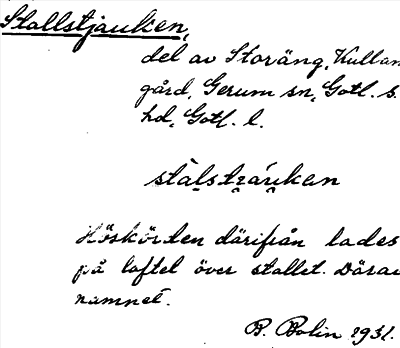 Stallstjauken,
del av Storäng, Kullan
gård, Gerum sn, Gotl. s.
hd, Gotl. l.
stalstráuken
Höskörden därifrån lades
på loftet över stallet. Därav
namnet.
B. Bolin 1931.